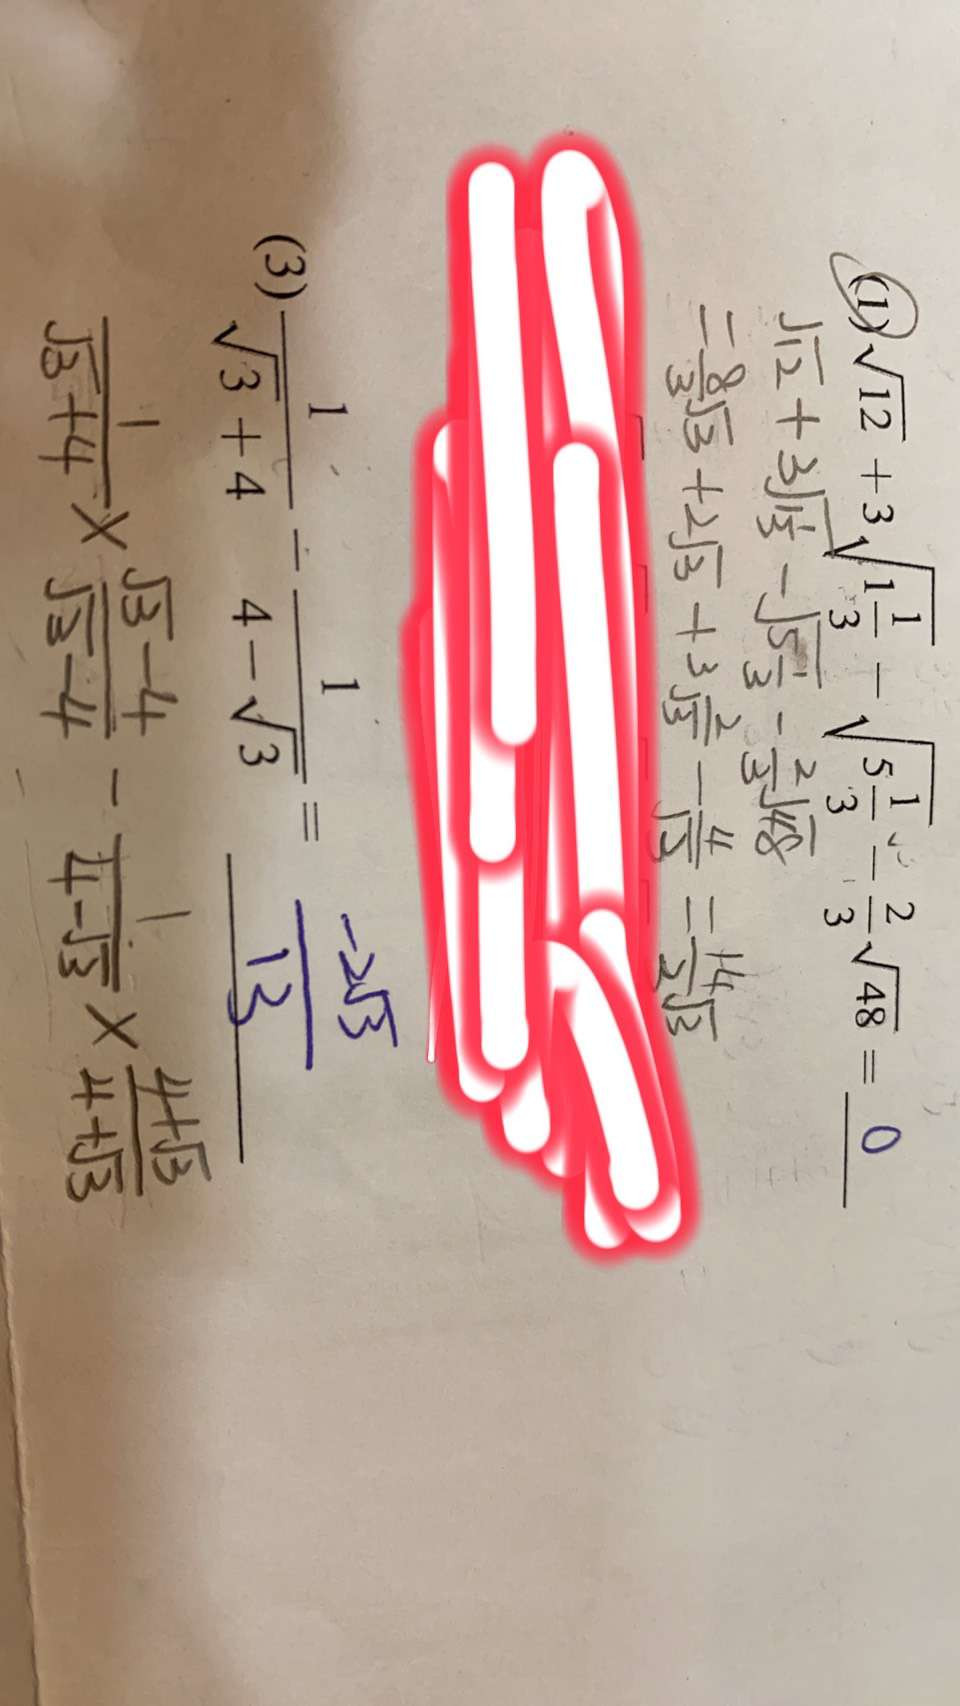 (1) √12 + 3√(1 1/3) − √(5 1/3) − 2/3 √48 = 0
√12 + 3√(1 1/3) − √(5 1/3) − 2/3 √48
= 8/3 √3 + 2√3 + 3 2/√3 − 4/√3 = 14/2 √3
(3) 1/(√3 + 4) − 1/(4 − √3) = −2√3/13
1/(√3+4) × (√3−4)/(√3−4) − 1/(4−√3) × (4+√3)/(4+√3)